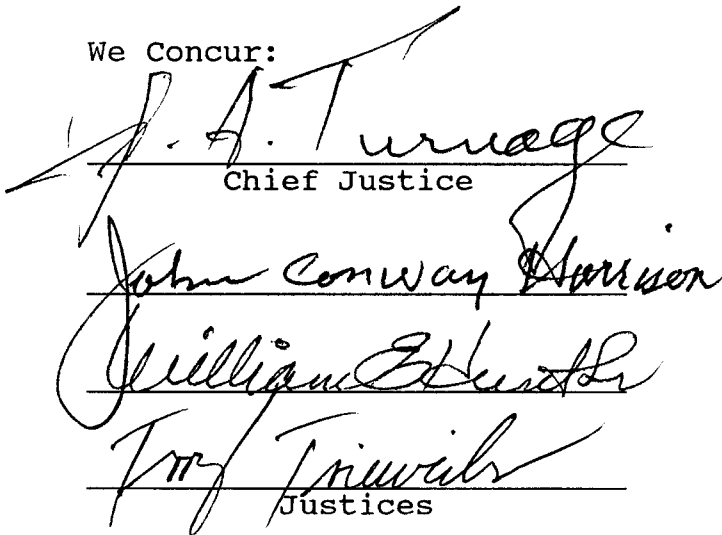 We Concur:
J. A. Turnage
Chief Justice
John Conway Harrison
William E Hunt Sr
Terry Trieweiler
Justices